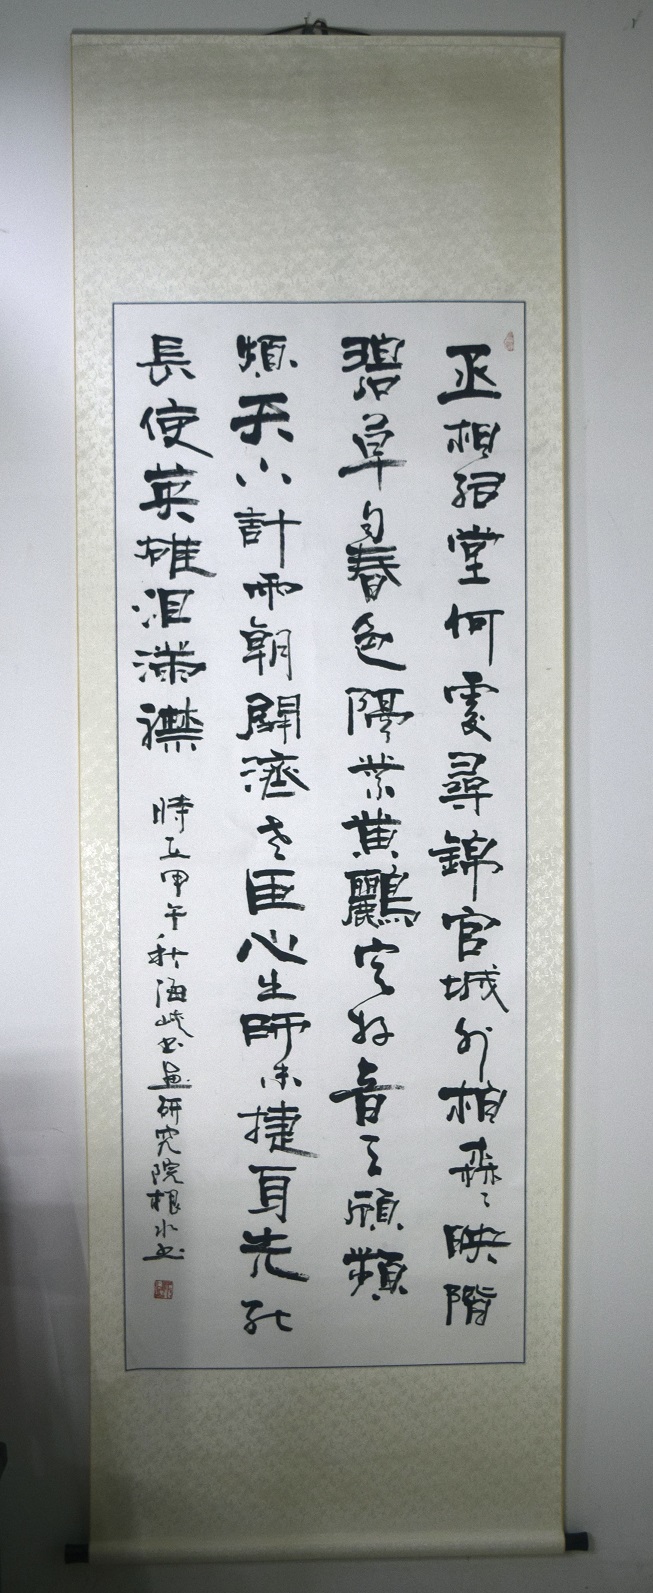 丞相祠堂何處尋錦官城外柏森々映階
碧草自春色隔葉黃鸝空好音三顧頻
煩天下計兩朝開濟老臣心出師未捷身先死
長使英雄泪滿襟 時在甲午秋海峽书畫研究院根水书